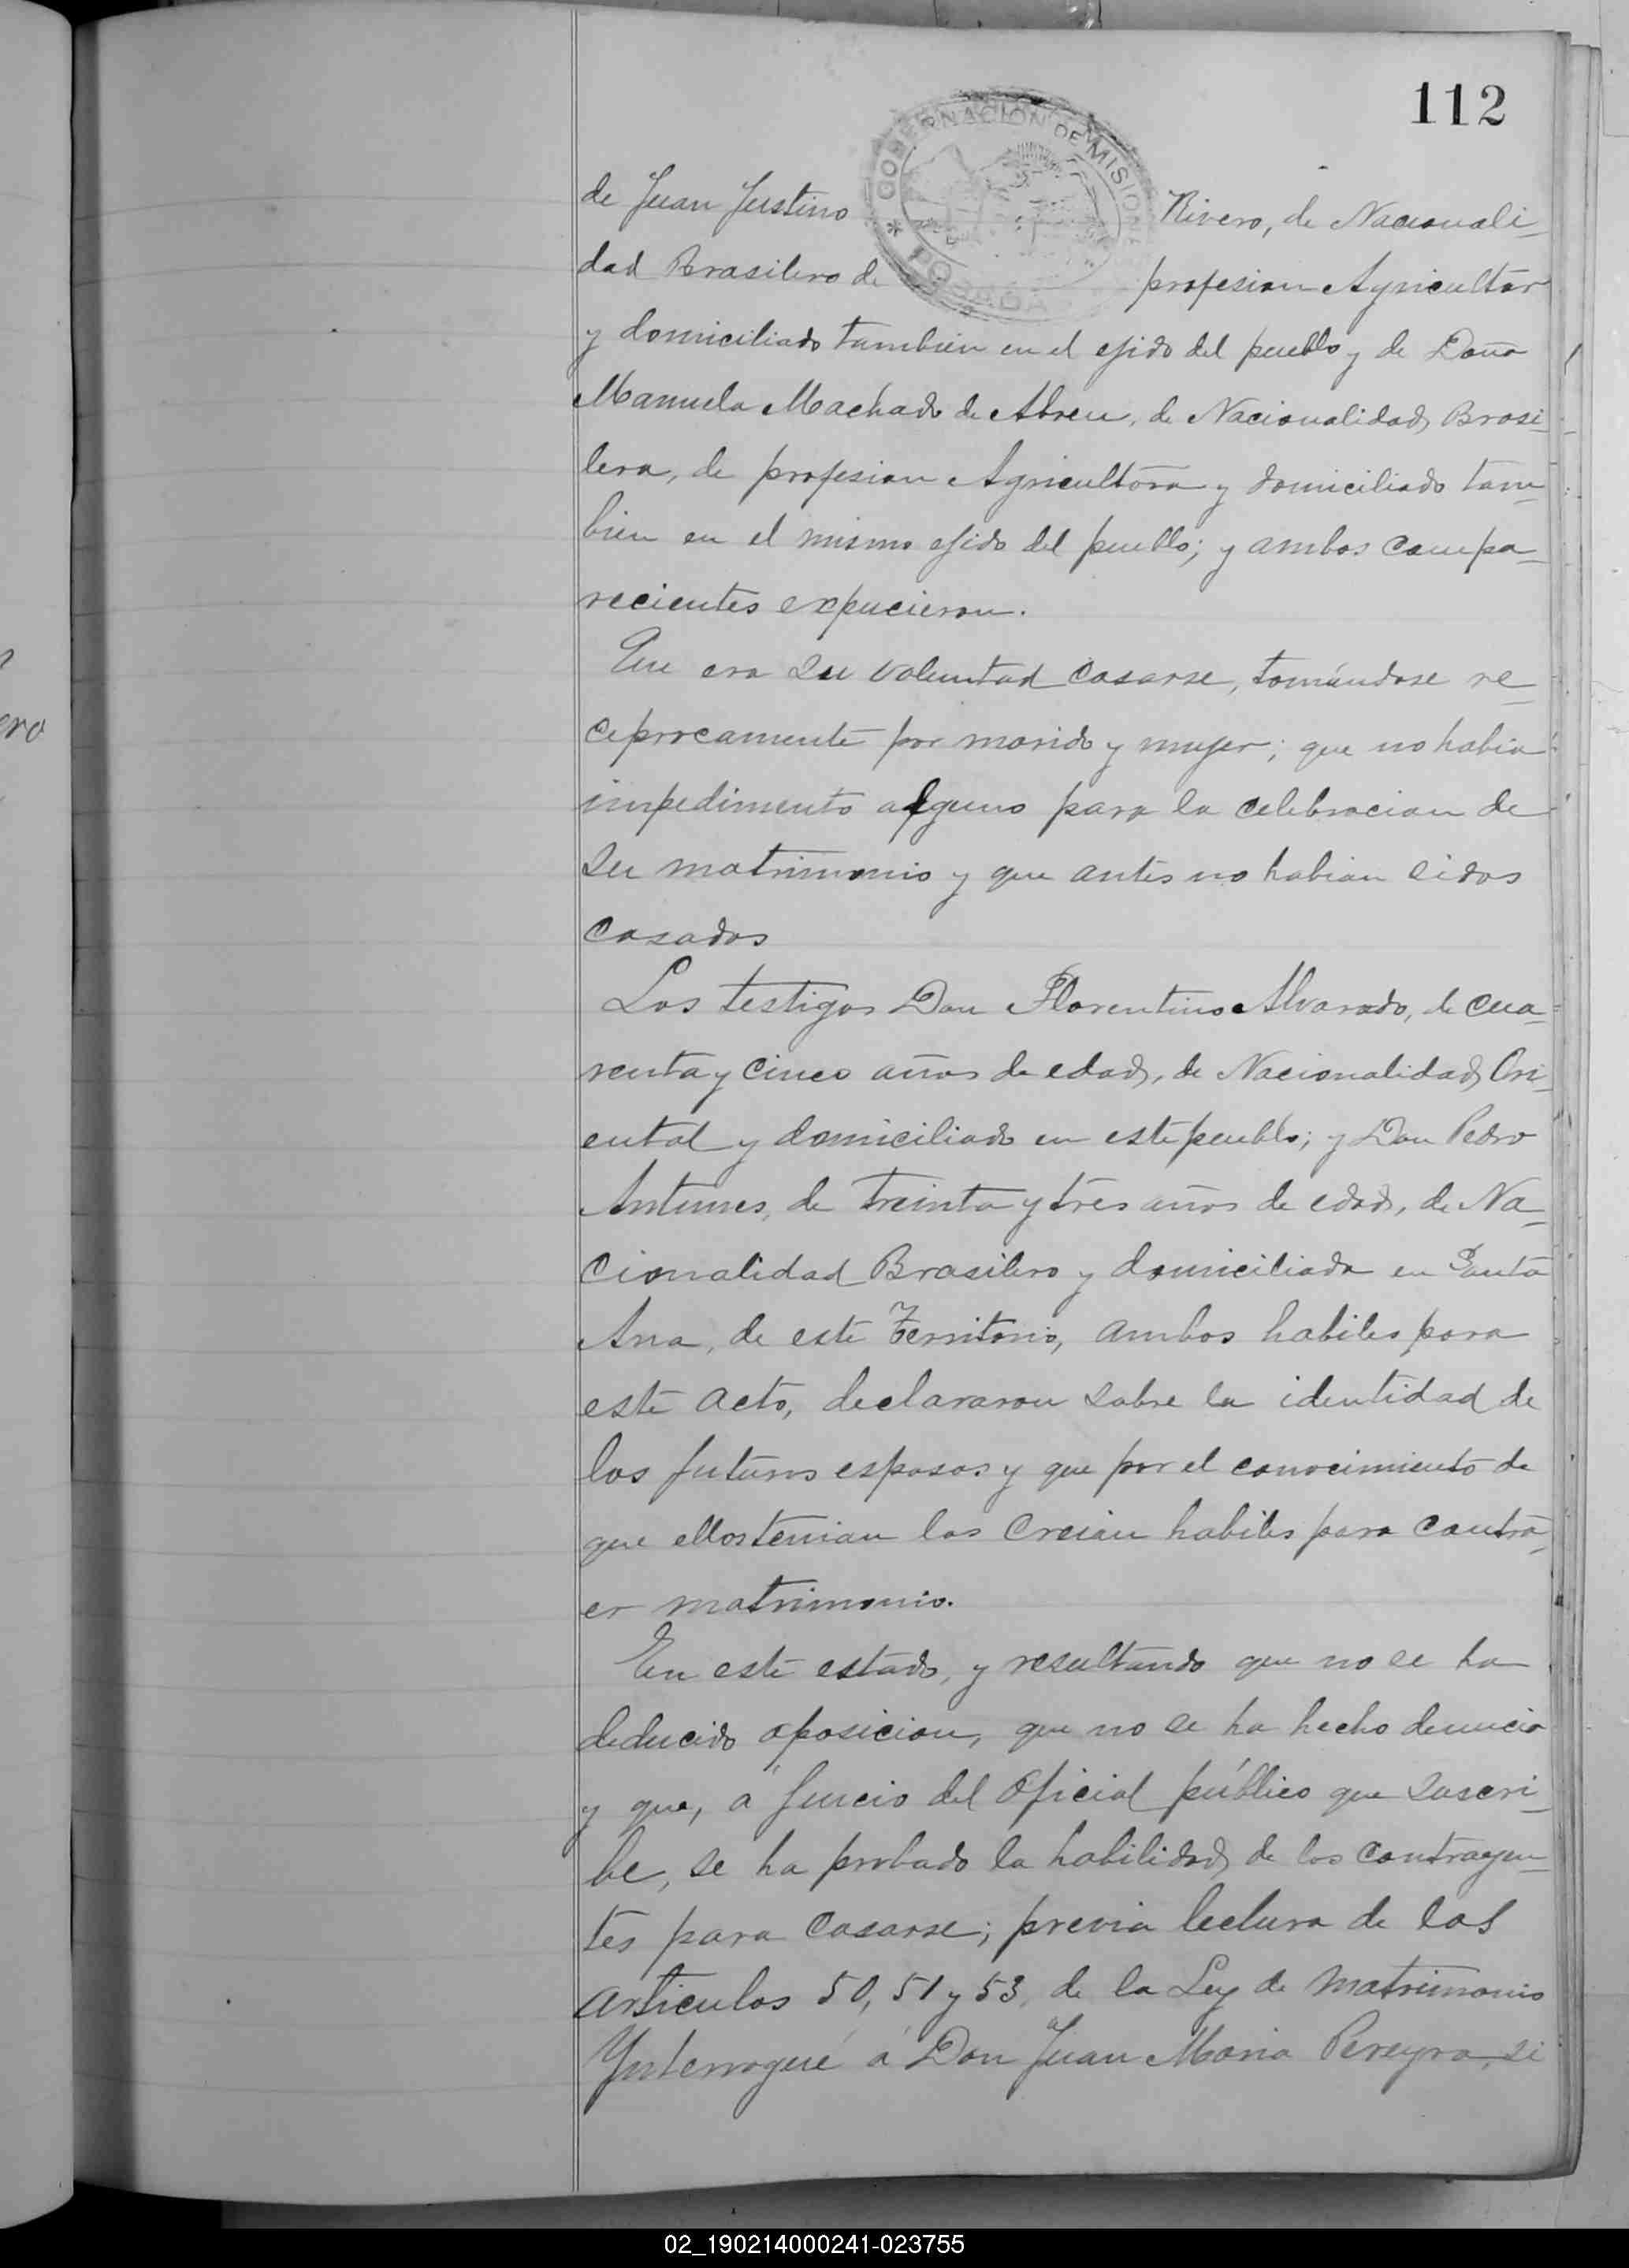 112
GOBERNACION DE MISIONES
* POSADAS
de Juan Justino Rivero, de Nacionali-
dad Brasilero de profesion Agricultor
y domiciliado tambien en el ejido del pueblo y de Doña
Manuela Machado de Abreu, de Nacionalidad Brasi-
lera, de profesion Agricultora y domiciliado tam-
bien en el mismo ejido del pueblo; y ambos compa-
recientes expucieron.
Que era su voluntad casarse, tomándose re-
ciprocamente por marido y mujer; que no habia
impedimento alguno para la celebracion de
su matrimonio y que antes no habian sidos
casados
Los testigos Don Florentino Alvarado, de cua-
renta y cinco años de edad, de Nacionalidad Ori-
ental y domiciliado en este pueblo; y Don Pedro
Antunes, de treinta y tres años de edad, de Na-
cionalidad Brasilero y domiciliado en Santa
Ana, de este Territorio, ambos habiles para
este acto, declararon sobre la identidad de
los futuros esposos y que por el conocimiento de
que ellos tenian los creian habiles para contra-
er matrimonio.
En este estado, y resultando que no se ha
deducido oposicion, que no se ha hecho denuncia
y que, á juicio del oficial público que suscri-
be, se ha probado la habilidad de los contrayen-
tes para casarse; previa lectura de los
articulos 50, 51 y 53, de la Ley de Matrimonio
Ynterrogué á Don Juan Maria Pereyra, si
ero
02_190214000241-023755